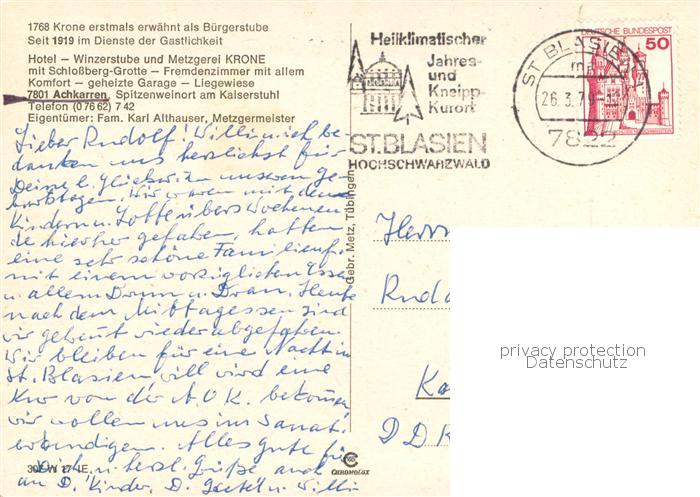 1768 Krone erstmals erwähnt als Bürgerstube
Seit 1919 im Dienste der Gastlichkeit
Hotel – Winzerstube und Metzgerei KRONE
mit Schloßberg-Grotte – Fremdenzimmer mit allem
Komfort – geheizte Garage – Liegewiese
7801 Achkarren, Spitzenweinort am Kaiserstuhl
Telefon (07662) 742
Eigentümer: Fam. Karl Althauser, Metzgermeister
Lieber Rudolf! Will mich be-
danken uns herzlichst für
Deine l. Glückw. zu unseren Ge-
burtstagen. Wir waren mit den
Kindern u. Lotte übers Wochenen
de hierher gefahren, hatten
eine sehr schöne Familienf.
mit einem vorzüglichen Essen
u. allem Drum u. Dran. Heute
nach dem Mittagessen sind
wir getrennt wieder abgefahren.
Wir bleiben für eine Nacht in
St. Blasien, will wird eine
Kur von der A.O.K. bekommen
wir wollen uns im Sanat.
erkundigen. Alles gute für
Dich u. herzl. Grüße auch
an D. Kinder, D. u. Willi
302 W 17 IE
Gebr. Metz, Tübingen
CHROMOLUX
Heilklimatischer
Jahres-
und
Kneipp-
Kurort
ST.BLASIEN
HOCHSCHWARZWALD
ST BLASIEN
26.3.79
7822
DEUTSCHE BUNDESPOST
50
Herrn
Rudo
Ka
DDR
privacy protection
Datenschutz